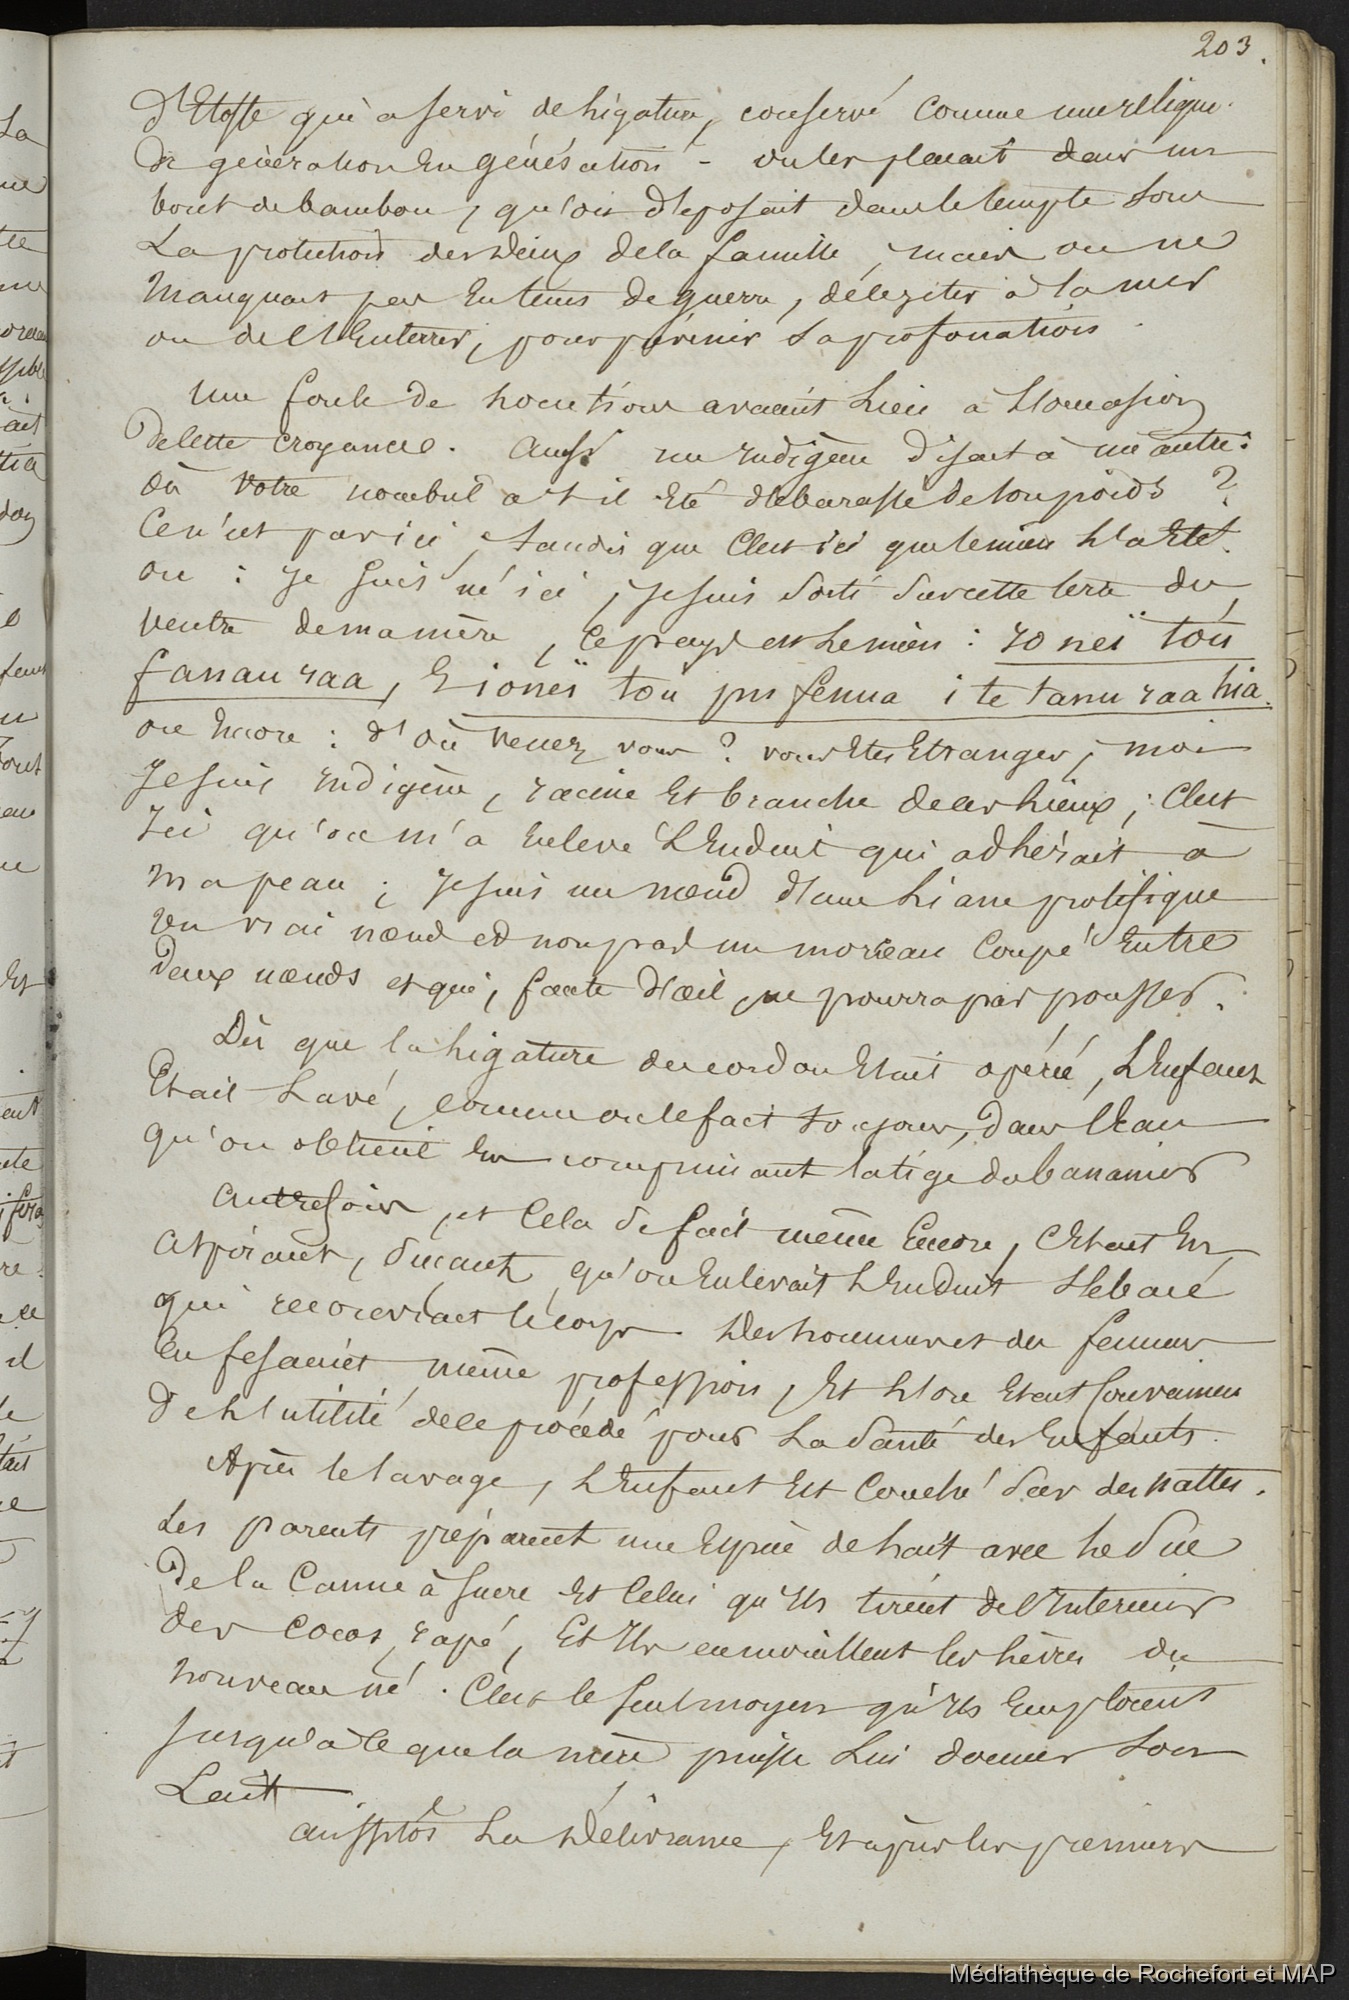 203.
d'Etoffe qui a servi de ligature, conservé comme une relique
de génération en génération - on les placait dans un
bout de bambou, qu'on déposait dans le temple sous
La protection des Dieux de la famille, mais on ne
Manquait pas En tems de guerre, de les jeter à la mer
ou de l'Enterrer, pour prévenir La profanation.
Une foule de locutions avaient Lieu à l'occasion
de cette croyance. Aussi un Indigène disait à un autre:
Où Votre nombril a t il Eté débarassé de son poids ?
Ce n'est pas ici, tandis que C'est ici que le mien L'a Eté.
ou : Je suis né ici, Je suis sorti sur cette terre du
ventre de ma mère, Ce pays est Le mien : io nei tou
fanau raa, E io nei tou pu fenua i te tanu raa hia.
ou Encore : d'où venez vous ? vous Etes Etranger, moi
Je suis Indigène, racine Et branche de ces Lieux ; C'est
Ici qu'on m'a Enlevé L'Enduit qui adhérait à
Ma peau ; Je suis un noeud d'une Liane prolifique
un vrai noeud et non pas un morceau Coupé Entre
deux noeuds et qui, faute d'oeil, ne pourra pas pousser.
Dès que la Ligature du cordon Etait opérée, L'Enfant
Etait Lavé, comme on le fait toujours, dans l'Eau
qu'on obtient En comprimant la tige du bananier
Autrefois, et Cela se fait même Encore, C'Etait En
Aspirant, Sucant, qu'on Enlevait L'Enduit sébacé
qui recouvrait le corps. Des hommes et des femmes
En fesaient même profession, Et L'on Etait Convaincu
de L'utilité de ce procédé pour La Santé des Enfants.
Après le lavage, L'Enfant Est Couché sur des nattes.
Les parents préparent une Espèce de Lait avec Le Suc
De la Canne à Sucre Et Celui qu'Ils tirent de l'Interieur
des Cocos rapé, Et Ils en mouillent les Lèvres du
nouveau né. C'est le seul moyen qu'Ils Emploient
Jusqu'à ce que la mère puisse Lui donner Son
Lait
aussitôt La Délivrance, Et après les premiers
Médiathèque de Rochefort et MAP